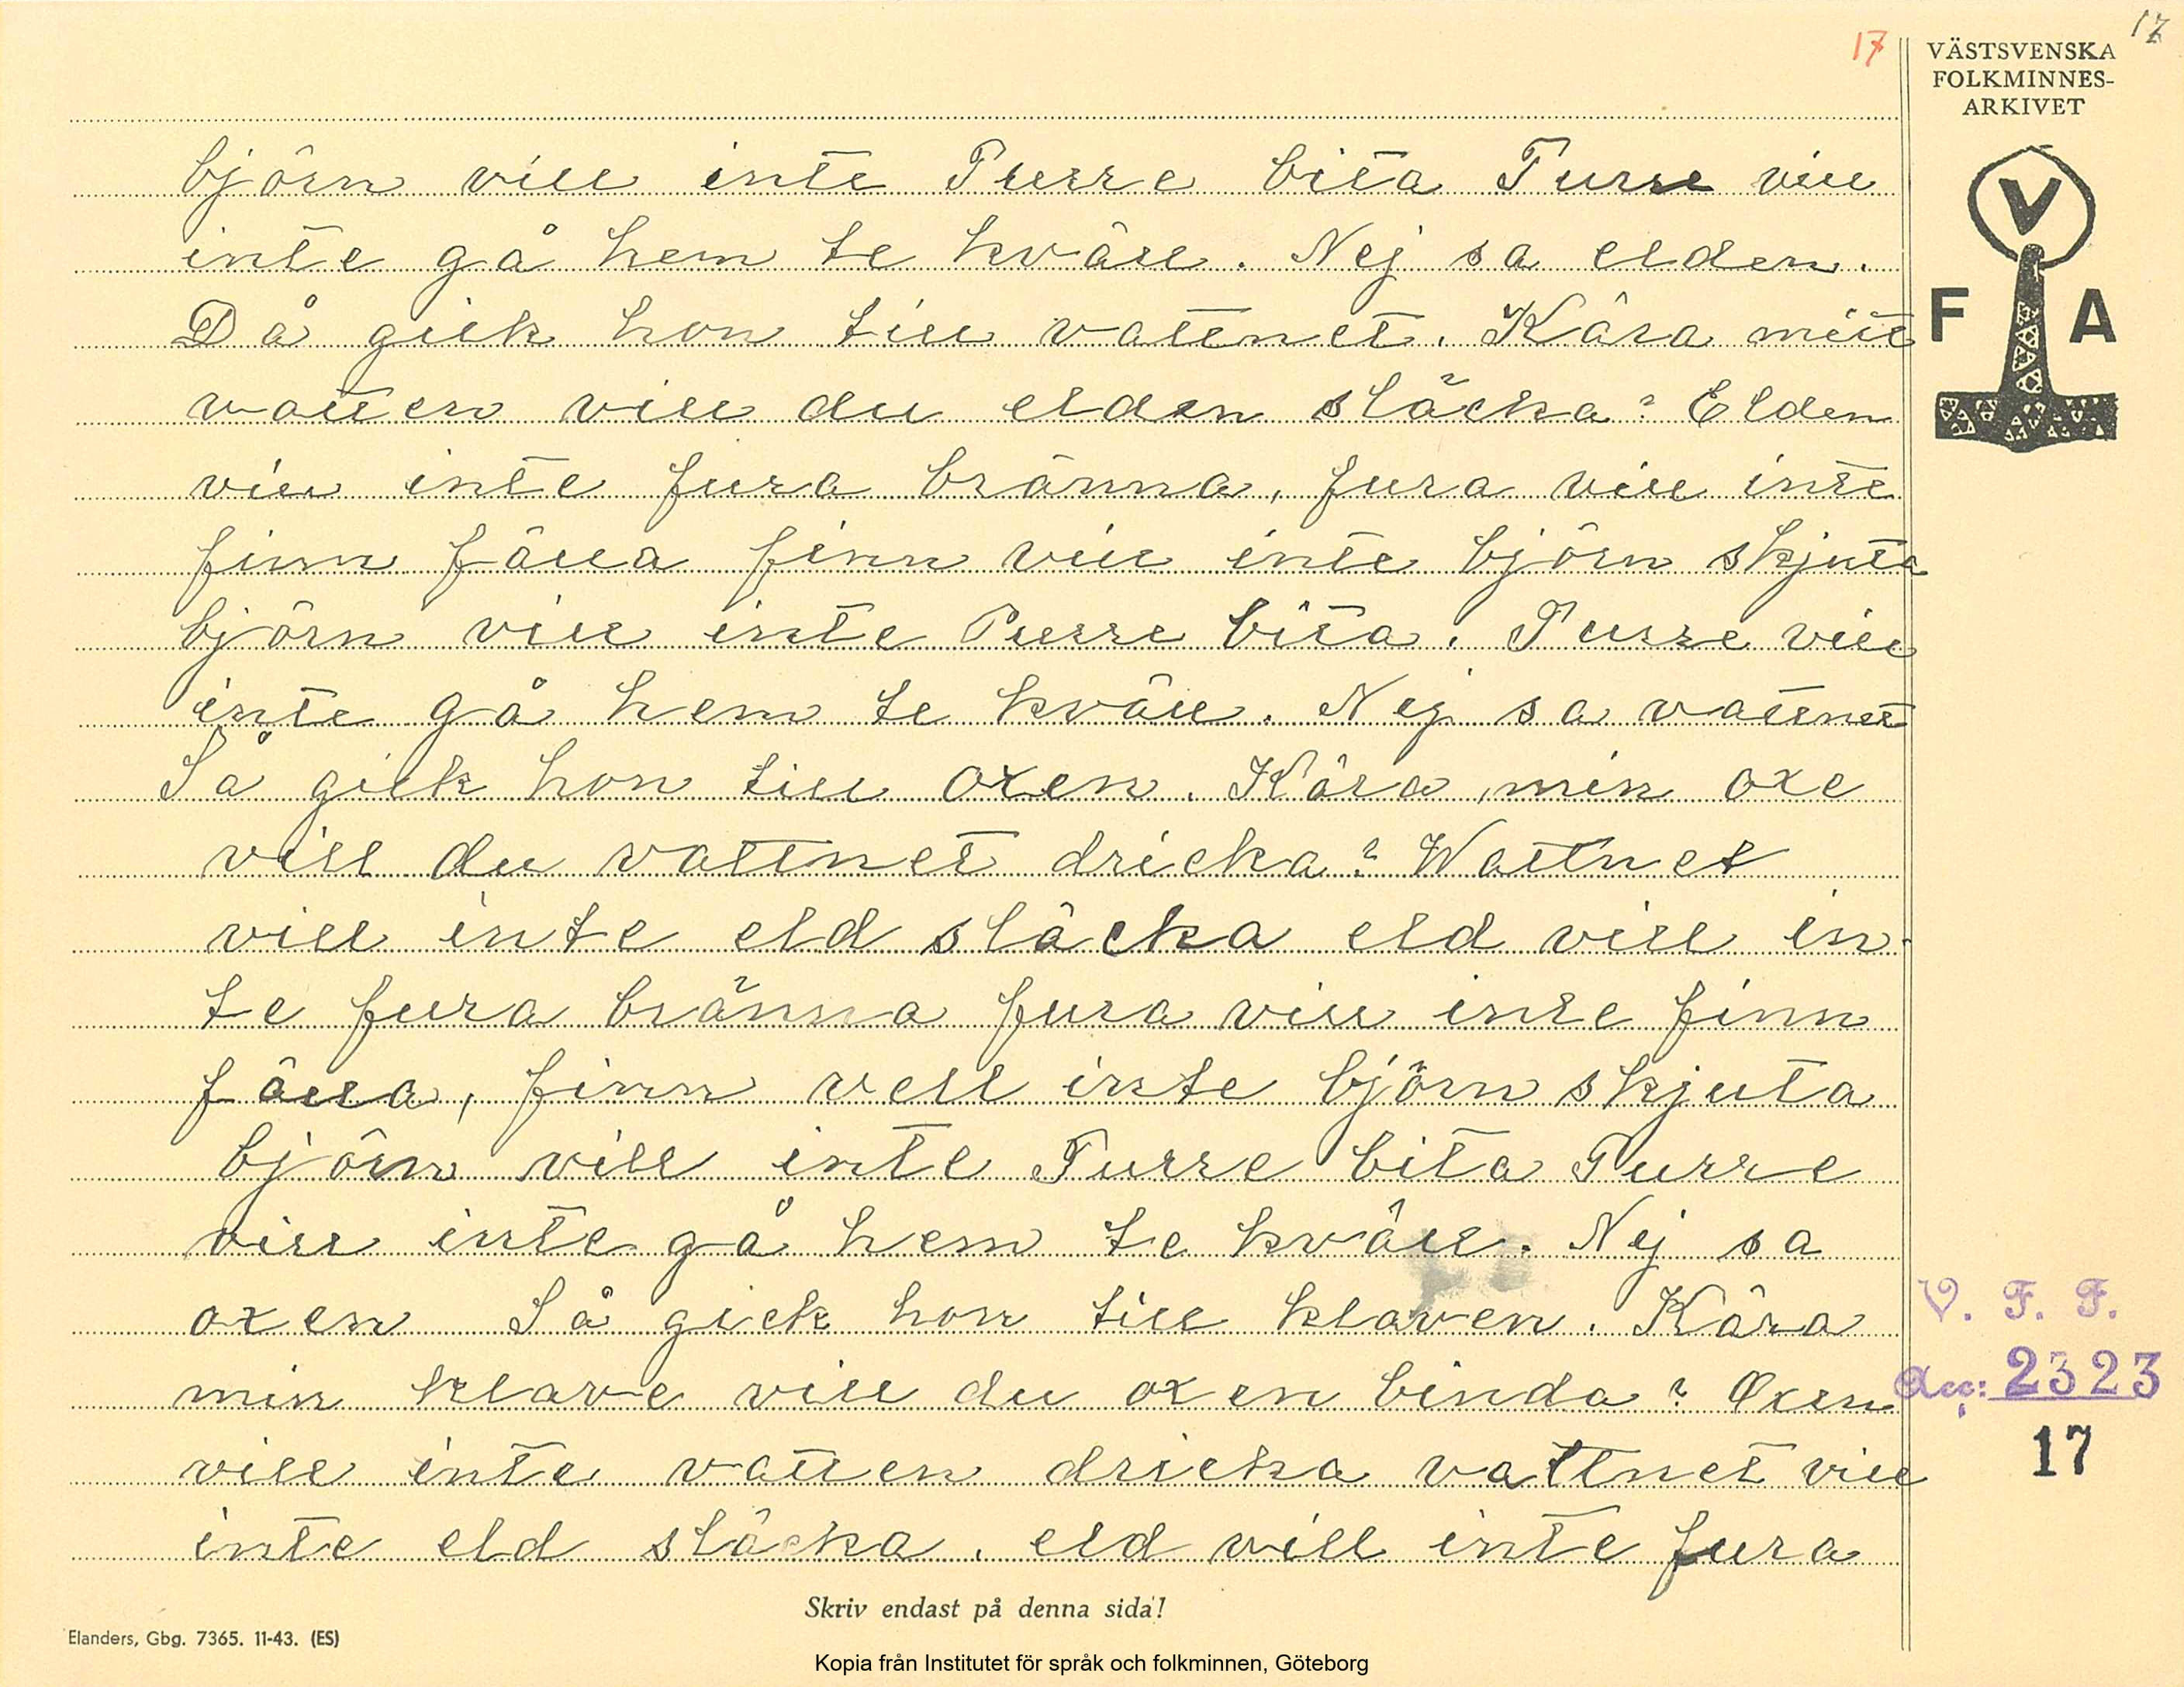 17
17
VÄSTSVENSKA
FOLKMINNES-
ARKIVET
V
F A
björn vill inte Turre bita Turre vill
inte gå hem te kväll. Nej sa elden.
Då gick hon till vattnet. Kära mitt
vatten vill du elden släcka? Elden
vill inte fura bränna, fura vill inte
finn fälla finn vill inte björn skjuta
björn vill inte Turre bita. Turre vill
inte gå hem te kväll. Nej sa vattnet
Så gick hon till oxen. Kära min oxe
vill du vattnet dricka? Wattnet
vill inte eld släcka eld vill in-
te fura bränna fura vill inte finn
fälla, finn vell inte björn skjuta
björn vill inte Turre bita Turre
vill inte gå hem te kväll. Nej sa
oxen Så gick hon till klaven. Kära
min klave vill du oxen binda? Oxen
vill inte vatten dricka vattnet vill
inte eld släcka. eld vill inte fura
V. F. F.
Acc: 2323
17
Skriv endast på denna sida!
Elanders, Gbg. 7365. 11-43. (ES)
Kopia från Institutet för språk och folkminnen, Göteborg